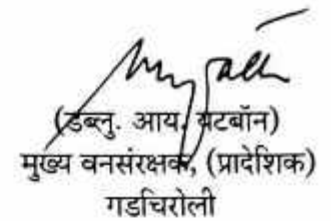 (डब्लु. आय. यटबॉन)
मुख्य वनसंरक्षक, (प्रादेशिक)
गडचिरोली